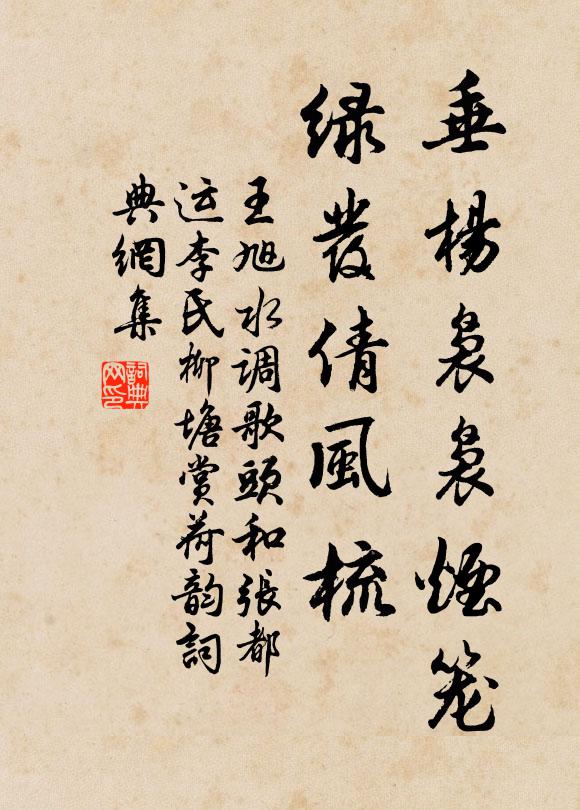 垂楊裊裊煙笼
緑發倩風梳
王旭水调歌頭和張都
运李氏柳塘賞荷韵詞
典網集
詞典网印